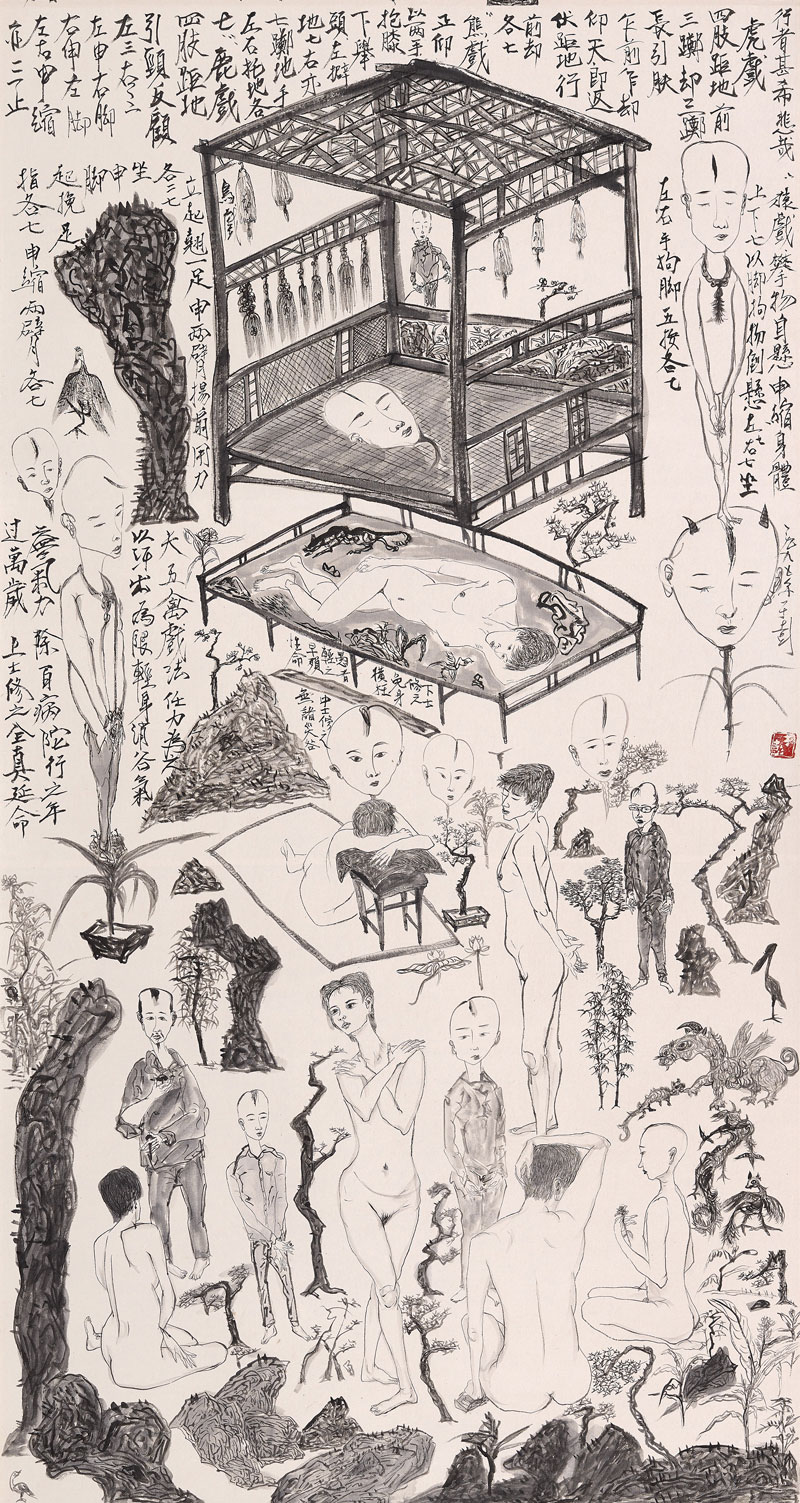 行者甚希悲哉、猿戲攀物自懸申缩身體
上下七以脚拘物倒懸左右七坐
左右手拘脚五按各七
虎戲
四肢距地前
三躑却二躑
長引肤
乍前乍却
仰天即返
伏距地行
前却
各七
熊戲
正仰
以兩手
抱膝
下舉
頭左擗
地七右亦
七躑地手
左右托地各
七、鹿戲
四肢距地
引頸反顧
左三右二
左申右脚
右申左脚
左右申縮
亦二了止
鳥戲
立起翹足申兩臂揚扇用力
各二七
坐申脚
起挽足
指各七申縮兩臂各七
夫五禽戲法任力為之
以汗出為限輕身消谷氣
益氣力除百病陀行之年
过萬歲 上士修之全真延命
中士修之
無諸災咎
下士修之
免身
橫枉
愚者
輕之
早殞
性命